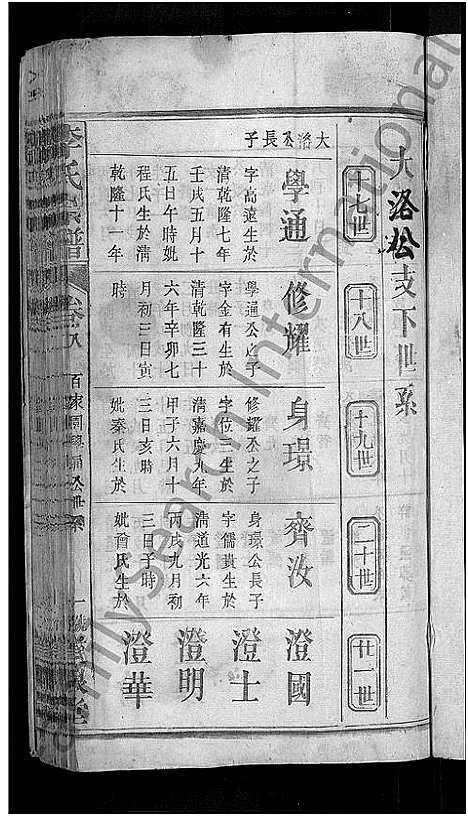 大洛公支下世系
十七世
十八世
十九世
二十世
廿一世
大洛公長子
學通
字高遠生於
清乾隆七年
壬戌五月十
五日午時妣
程氏生於清
乾隆十一年
修耀
學通公之子
字金有生於
清乾隆三十
六年辛卯七
月初三日寅
時
身璟
修耀公之子
字位三生於
清嘉慶九年
甲子六月十
三日亥時
妣秦氏生於
齊汝
身璟公長子
字儒貴生於
清道光六年
丙戌九月初
三日子時
妣曾氏生於
澄國
澄士
澄明
澄華
李氏宗譜
卷八
公世系
Family Search International